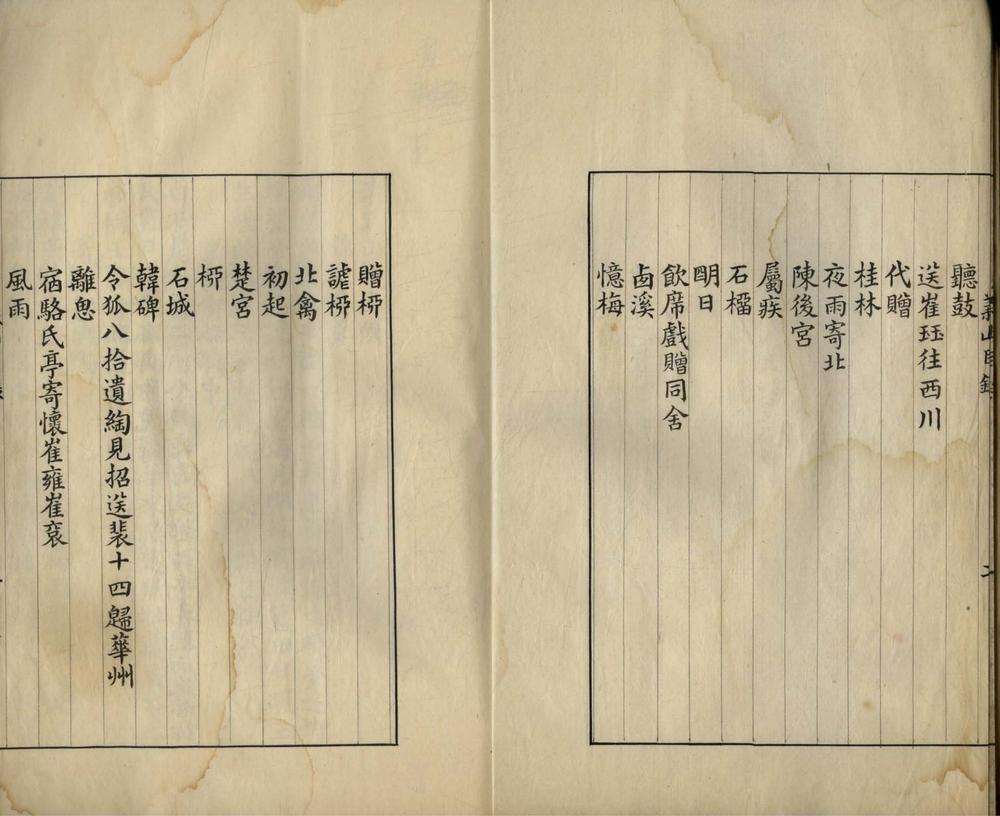 聽鼓
送崔珏往西川
代贈
桂林
夜雨寄北
陳後宮
屬疾
石榴
明日
飲席戲贈同舍
鹵溪
憶梅
贈桺
謔桺
北禽
初起
楚宮
桺
石城
韓碑
令狐八拾遺綯見招送裴十四歸華州
離思
宿駱氏亭寄懷崔雍崔袞
風雨